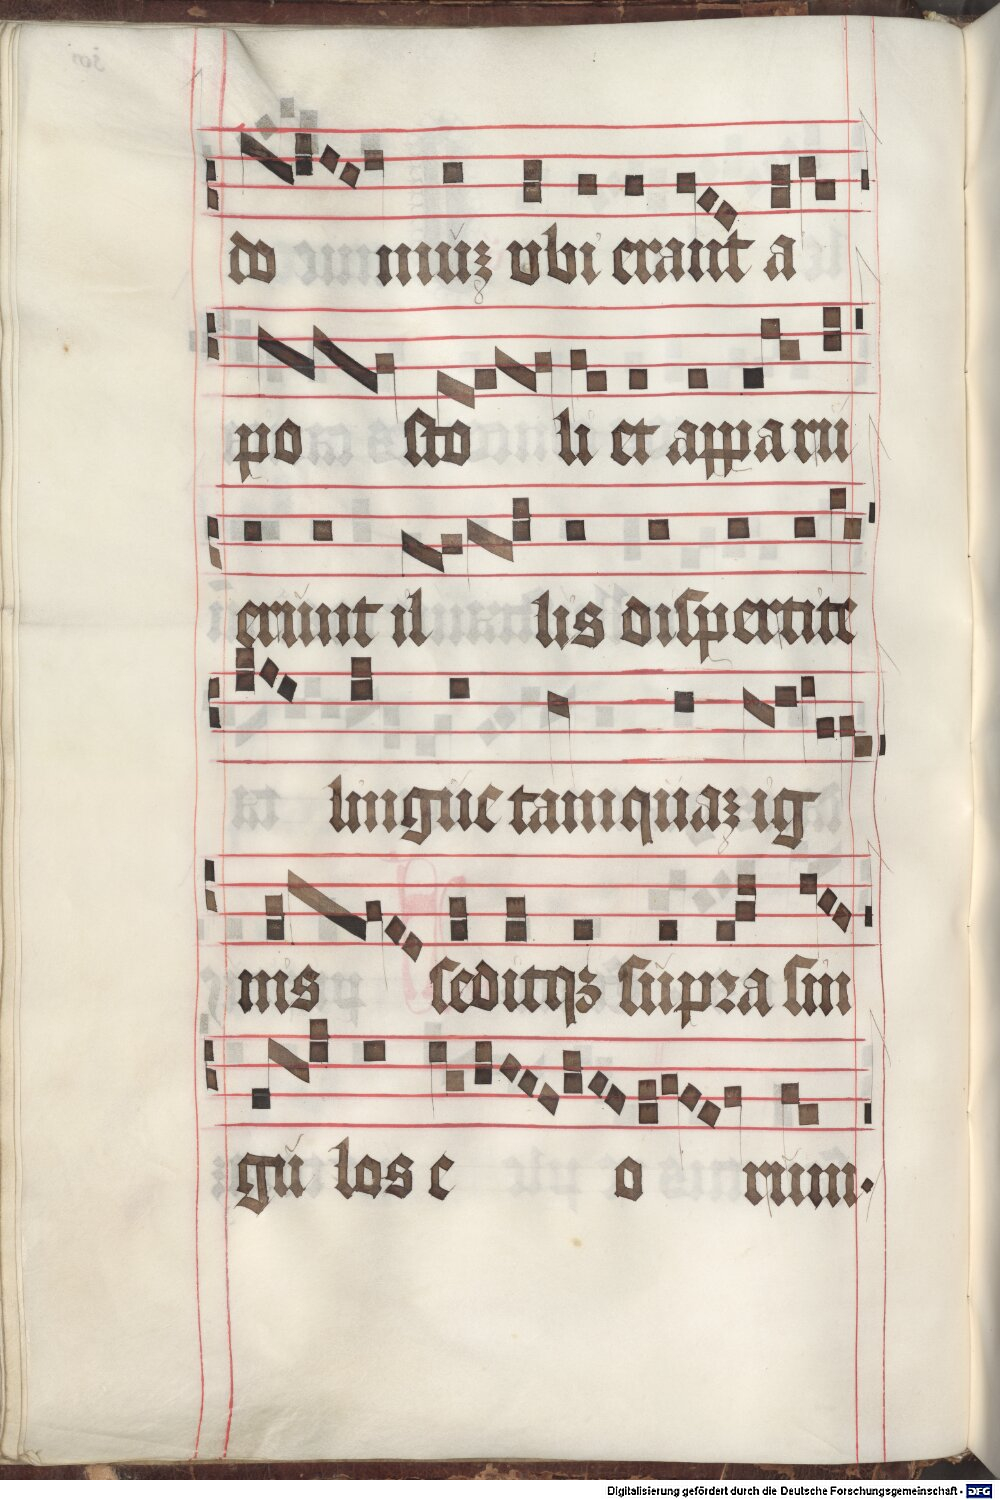 do muꝫ vbi erant a
po sto li et apparu
erunt il lis dispertite
lingue tamquaꝫ ig
nis seditqꝫ supra sin
gu los e o rum.
Digitalisierung gefördert durch die Deutsche Forschungsgemeinschaft - DFG